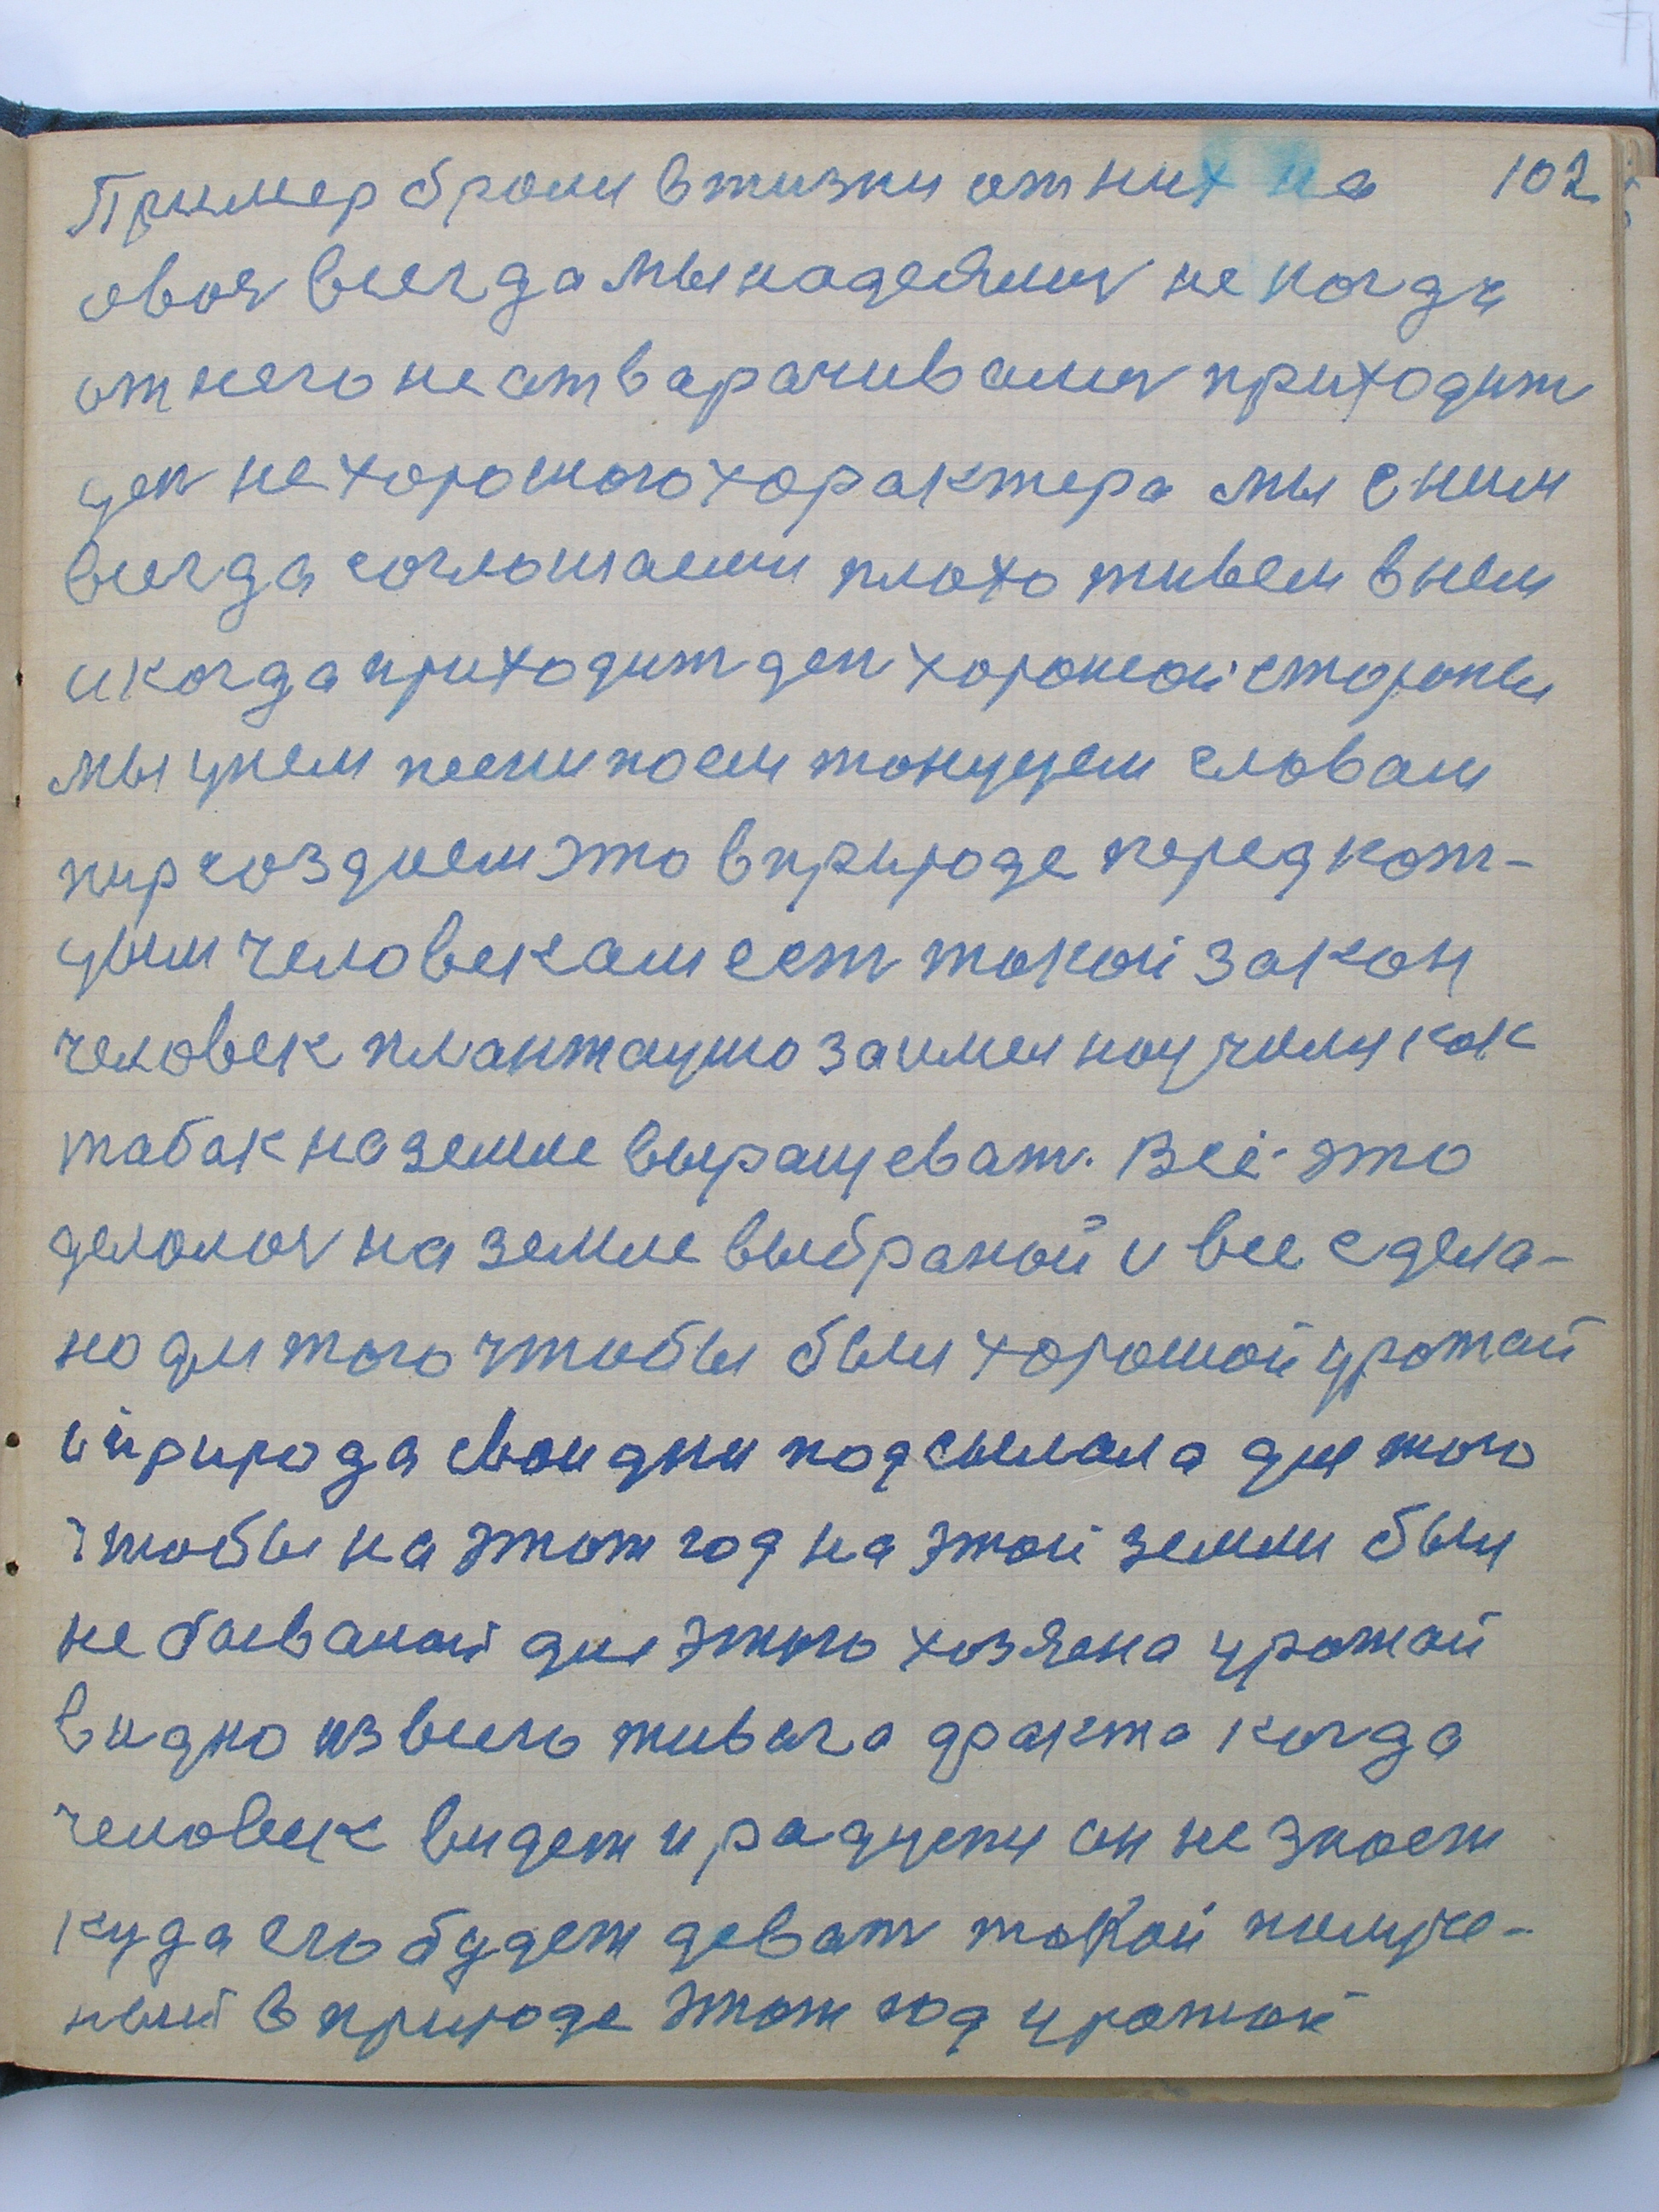 102
Пример брали в жизни от них на
овоя всегда мы надеялися не когда
от него не отварачивалися приходит
ден не хорошого характера мы с ним
всегда соглошаеми плохо живем в нем
и когда приходит ден хорошой стороны
мы у нем песни поем тонцуем словам
пир создаем это в природе перед кож-
дым человекам ест такой закон
человек плантацию заимел научили как
табак на земле выращеват. Всё это
делолос на земле выбраной и все сдела-
но для того чтобы был хорошой урожай
и природа свои дни подсылала для того
чтобы на этот год на этой земли был
не бываной для этого хозяена урожай
видно из всего живого факта когда
человек видет и радуетця он не знает
куда его будет деват такой получе-
ный в природе этот год урожай